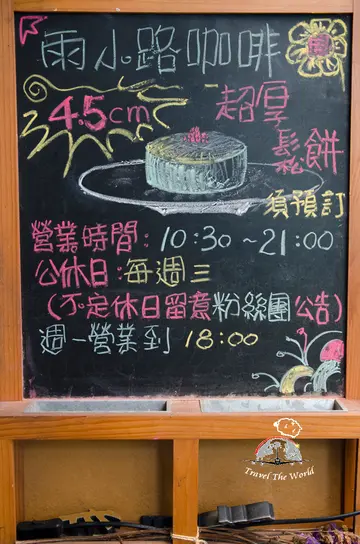 雨小路咖啡
4.5cm
超厚
鬆餅
須預訂
營業時間：10:30～21:00
公休日：每週三
（不定休日留意粉絲團公告）
週一營業到 18:00
Travel The World